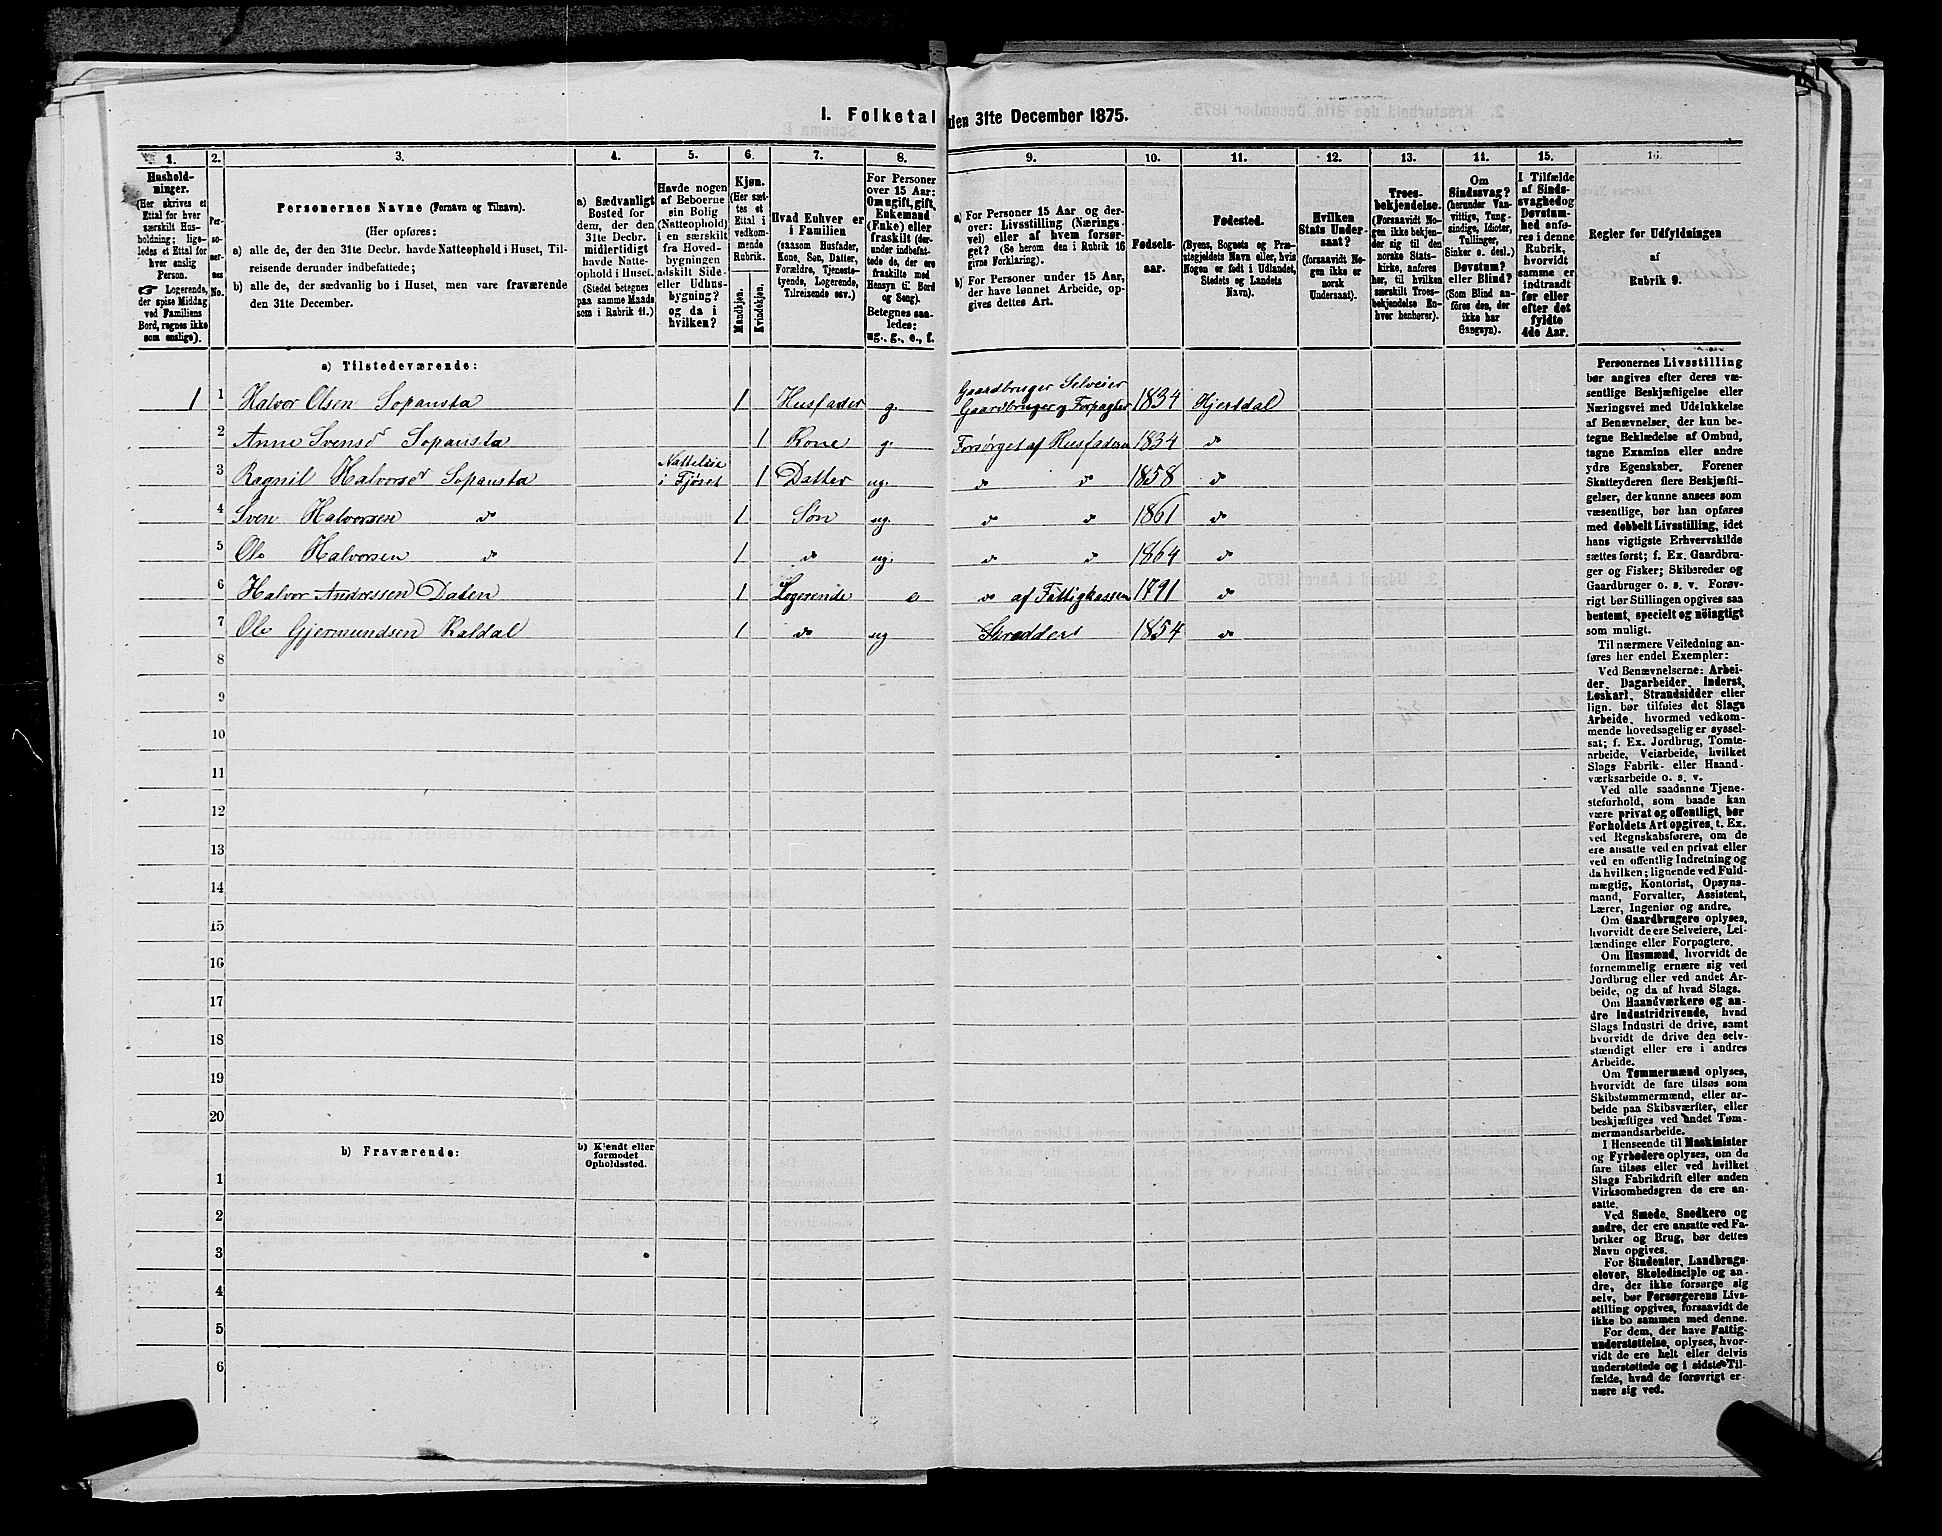 I. Folketal den 31te December 1875.
1.
2.
3.
4.
5.
6.
7.
8.
9.
10.
11.
12.
13.
14.
15.
16.
Husholdninger.
(Her skrives et
Ettal for hver
særskilt Husholdning;
ligeledes et Ettal for
hver enslig
Person.
☞ Logerende,
der spise Middag
ved Familiens
Bord, regnes ikke
som enslige).
Personernes No.
Personernes Navne (Fornavn og Tilnavn).
(Her opføres:
a) alle de, der den 31te Decbr. havde Natteophold i Huset, Tilreisende derunder indbefattede;
b) alle de, der sædvanlig bo i Huset, men vare fraværende
den 31te December.
a) Sædvanligt
Bosted for
dem, der den
31te Decbr.
midlertidigt
havde Natteophold i Huset.
(Stedet betegnes
paa samme Maade
som i Rubrik 11.)
Havde nogen
af Beboerne
sin Bolig
(Natteophold)
i en særskilt
fra Hovedbygningen
adskilt Side-
eller Udhusbygning?
og da i
hvilken?
Kjøn.
(Her sættes et
Ettal i
vedkommende
Rubrik.
Mandkjøn.
Kvindekjøn.
Hvad Enhver er
i Familien
(saasom Husfader,
Kone, Søn, Datter,
Forældre, Tjenestetyende, Logerende,
Tilreisende osv.)
For Personer
over 15 Aar:
Om ugift, gift,
Enkemand
(Enke) eller
fraskilt (derunder indbefattede de, der ere
fraskilte med
Hensyn til Bord
og Seng).
Betegnes saaledes:
ug., g., e., f.
a) For Personer 15 Aar og derover: Livsstilling (Næringsvei) eller af hvem forsørget? (Se herom den i Rubrik 16
givne Forklaring).
b) For Personer under 15 Aar,
der have lønnet Arbeide, opgives dettes Art.
Fødselsaar.
Fødested.
(Byens, Sognets og Præstegjeldets Navn eller, hvis
Nogen er født i Udlandet,
Stedets og Landets
Navn).
Hvilken
Stats Undersaat?
(forsaavidt Nogen ikke er
norsk
Undersaat).
Troesbekjendelse.
(Forsaavidt Nogen ikke bekjender sig til den
norske Statskirke, anføres
her, til hvilken
særskilt Troesbekjendelse Enhver henhører).
Om
Sindssvag?
(herunder Vanvittige, Tungsindige, Idioter,
Tullinger,
Sinker o. desl.)
Døvstum?
eller Blind?
(Som Blind anføres den, der
ikke har
Gangsyn).
I Tilfælde
af Sindssvaghed og
Døvstumhed anføres i denne
Rubrik,
hvorvidt
samme er
indtraadt
før eller
efter det
fyldte
4de Aar.
Regler for Udfyldningen
af
Rubrik 9.
a) Tilstedeværende:
1 1 Halvor Olsen Sopansta 1 Husfader g. Gaardbruger Selveier Gaardbruger og Forpagter 1834 Hjertdal
2 Anne Svensd Sopansta 1 Kone g. Forsørget af Husfaderen 1834 do
3 Ragnil Halvorsd Sopansta Natteleie i Fjøset 1 Datter ug. do do 1858 do
4 Sven Halvorsen do 1 Søn ug. do do 1861 do
5 Ole Halvorsen do 1 do ug. do do 1864 do
6 Halvor Andressen Dalen 1 Logerende e do af Fattigkassen 1791 do
7 Ole Gjermundsen Kaldal 1 do ug Skredder 1854 do
8
9
10
11
12
13
14
15
16
17
18
19
20
b) Fraværende:
b) Kjendt eller
formodet
Opholdssted.
1
2
3
4
5
6
Personernes Livsstilling
bør angives efter deres væsentlige Beskjæftigelse eller
Næringsvei med Udelukkelse
af Benævnelser, der kun betegne Beklædelse af Ombud,
tagne Examina eller andre
ydre Egenskaber. Forener
Skatteyderen flere Beskjæftigelser, der kunne ansees som
væsentlige, bør han opføres
med dobbelt Livsstilling, idet
hans vigtigste Erhvervskilde
sættes først; f. Ex. Gaardbruger og Fisker; Skibsreder og
Gaardbruger o. s. v. Forøvrigt bør Stillingen opgives saa
bestemt, specielt og nöiagtigt
som muligt.
Til nærmere Veiledning anføres her endel Exempler:
Ved Benævnelserne: Arbeider, Dagarbeider, Inderst,
Løskarl, Strandsidder eller
lign. bør tilføies det Slags
Arbeide, hvormed vedkommende hovedsagelig er sysselsat; f. Ex. Jordbrug, Tomtearbeide, Veiarbeide, hvilket
Slags Fabrik- eller Haandværksarbeide o. s. v.
Ved alle saadanne Tjenesteforhold, som baade kan
være privat og offentligt, bør
Forholdets Art opgives, t. Ex.
ved Regnskabsførere, om de
ere ansatte ved en privat eller
ved en offentlig Indretning og
da hvilken; lignende ved Fuldmægtig, Kontorist, Opsynsmand, Forvalter, Assistent,
Lærer, Ingeniør og andre.
Om Gaardbrugere oplyses,
hvorvidt de ere Selveiere, Leilændinge eller Forpagtere.
Om Husmænd, hvorvidt de
fornemmelig ernære sig ved
Jordbrug eller ved andet Arbeide, og da af hvad Slags.
Om Haandværkere og andre Industridrivende, hvad
Slags Industri de drive, samt
hvorvidt de drive den selvstændigt eller ere i andres
Arbeide.
Om Tømmermænd oplyses,
hvorvidt de fare tilsøs som
Skibstømmermænd, eller arbeide paa Skibsværfter, eller
beskjæftiges ved andet Tømmermandsarbeide.
I Henseende til Maskinister
og Fyrbødere oplyses, om de
fare tilsøs eller ved hvilket
Slags Fabrikdrift eller anden
Virksomhedsgren de ere ansatte.
Ved Smede, Snedkere og
andre, der ere ansatte ved Fabriker og Brug, bør dettes
Navn opgives.
For Studenter, Landbrugselever, Skoledisciple og andre, der ikke forsørge sig
selv, bør Forsørgerens Livsstilling opgives, forsaavidt de
ikke bo sammen med denne.
For dem, der have Fattigunderstøttelse, oplyses, hvorvidt de ere helt eller delvis
understøttede og i sidste Tilfælde, hvad de forøvrigt ernære sig ved.